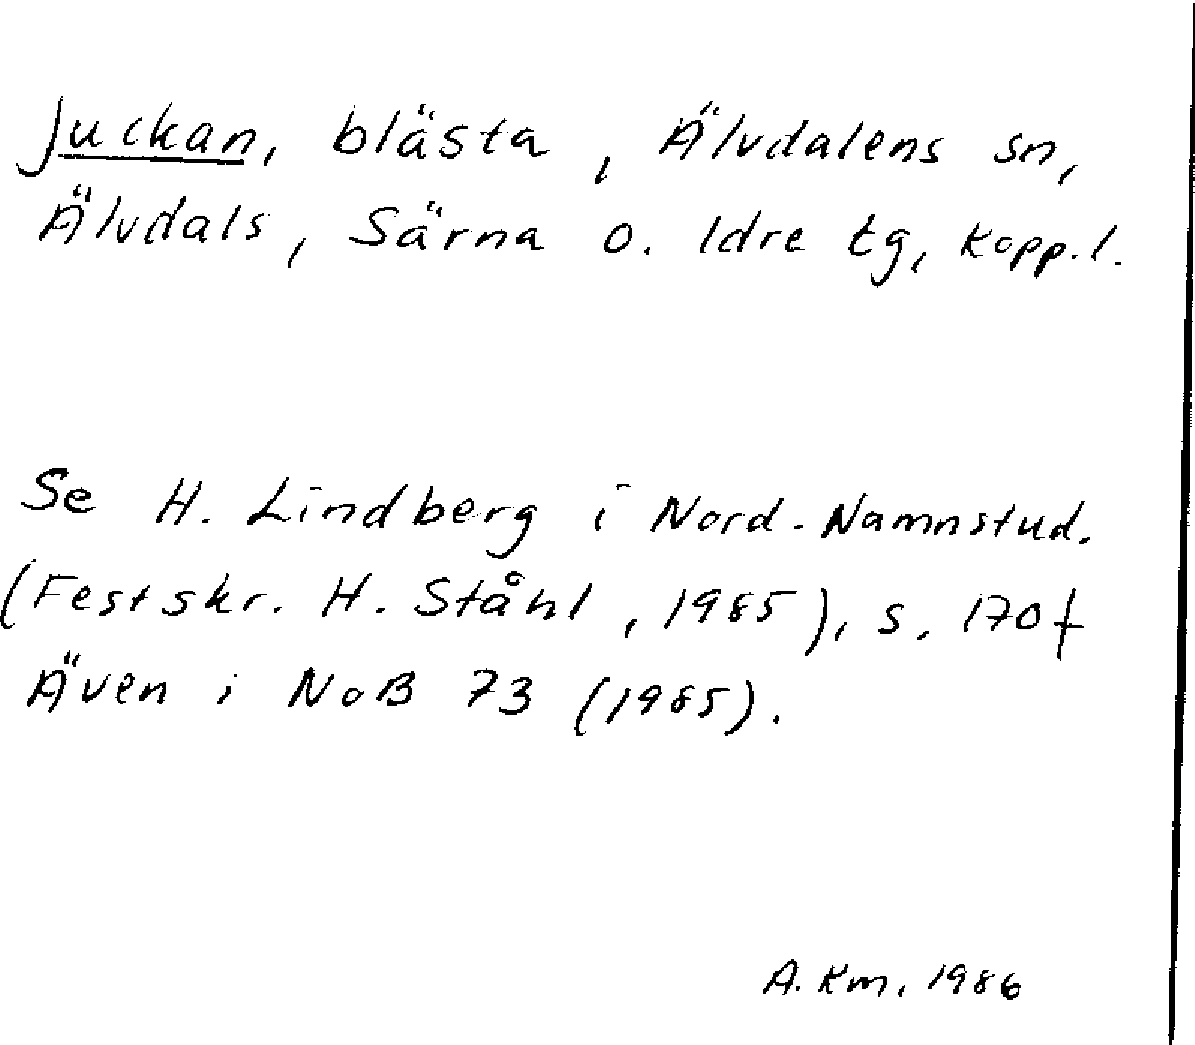 Juckan, blästa, Älvdalens sn,
Älvdals, Särna o. Idre tg, Kopp.l.
Se H. Lindberg i Nord. Namnstud.
(Festskr. H. Ståhl, 1985), s. 170f
Även i NoB 73 (1985).
A. Km, 1986